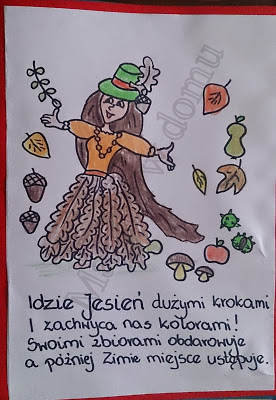 Idzie Jesień dużymi krokami
I zachwyca nas kolorami!
Swoimi zbiorami obdarowuje
a później Zimie miejsce ustępuje.